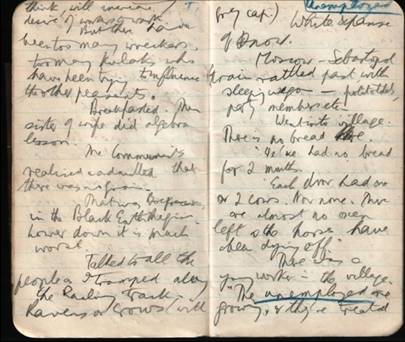 think, will increase
desire of workers to work.
But there have
been too many wreckers,
too many kulaks who
have been trying to influence
the other peasants.
Breakfasted. Then
sister of wife did algebra
lesson.
The Communists
realised & admitted that
there was no grain.
in the Black Earth Region.
lower down it is much
worst.
Talked to all the
people as I tramped along
the Railway Track.
Ravens or Crows will
grey cap.)
Unemployed
White expanse
of snow.
Moscow - Sebastopol
train rattled past with
sleeping wagon —
party members etc.
Went into village.
There is no bread here.
"We've had no bread
for 2 months.
Each door had one
or 2 cows. Now none. There
are almost no oxen
left & the horses have
been dying off."
There was a
young worker in the village.
"The unemployed are
growing, & they're treated